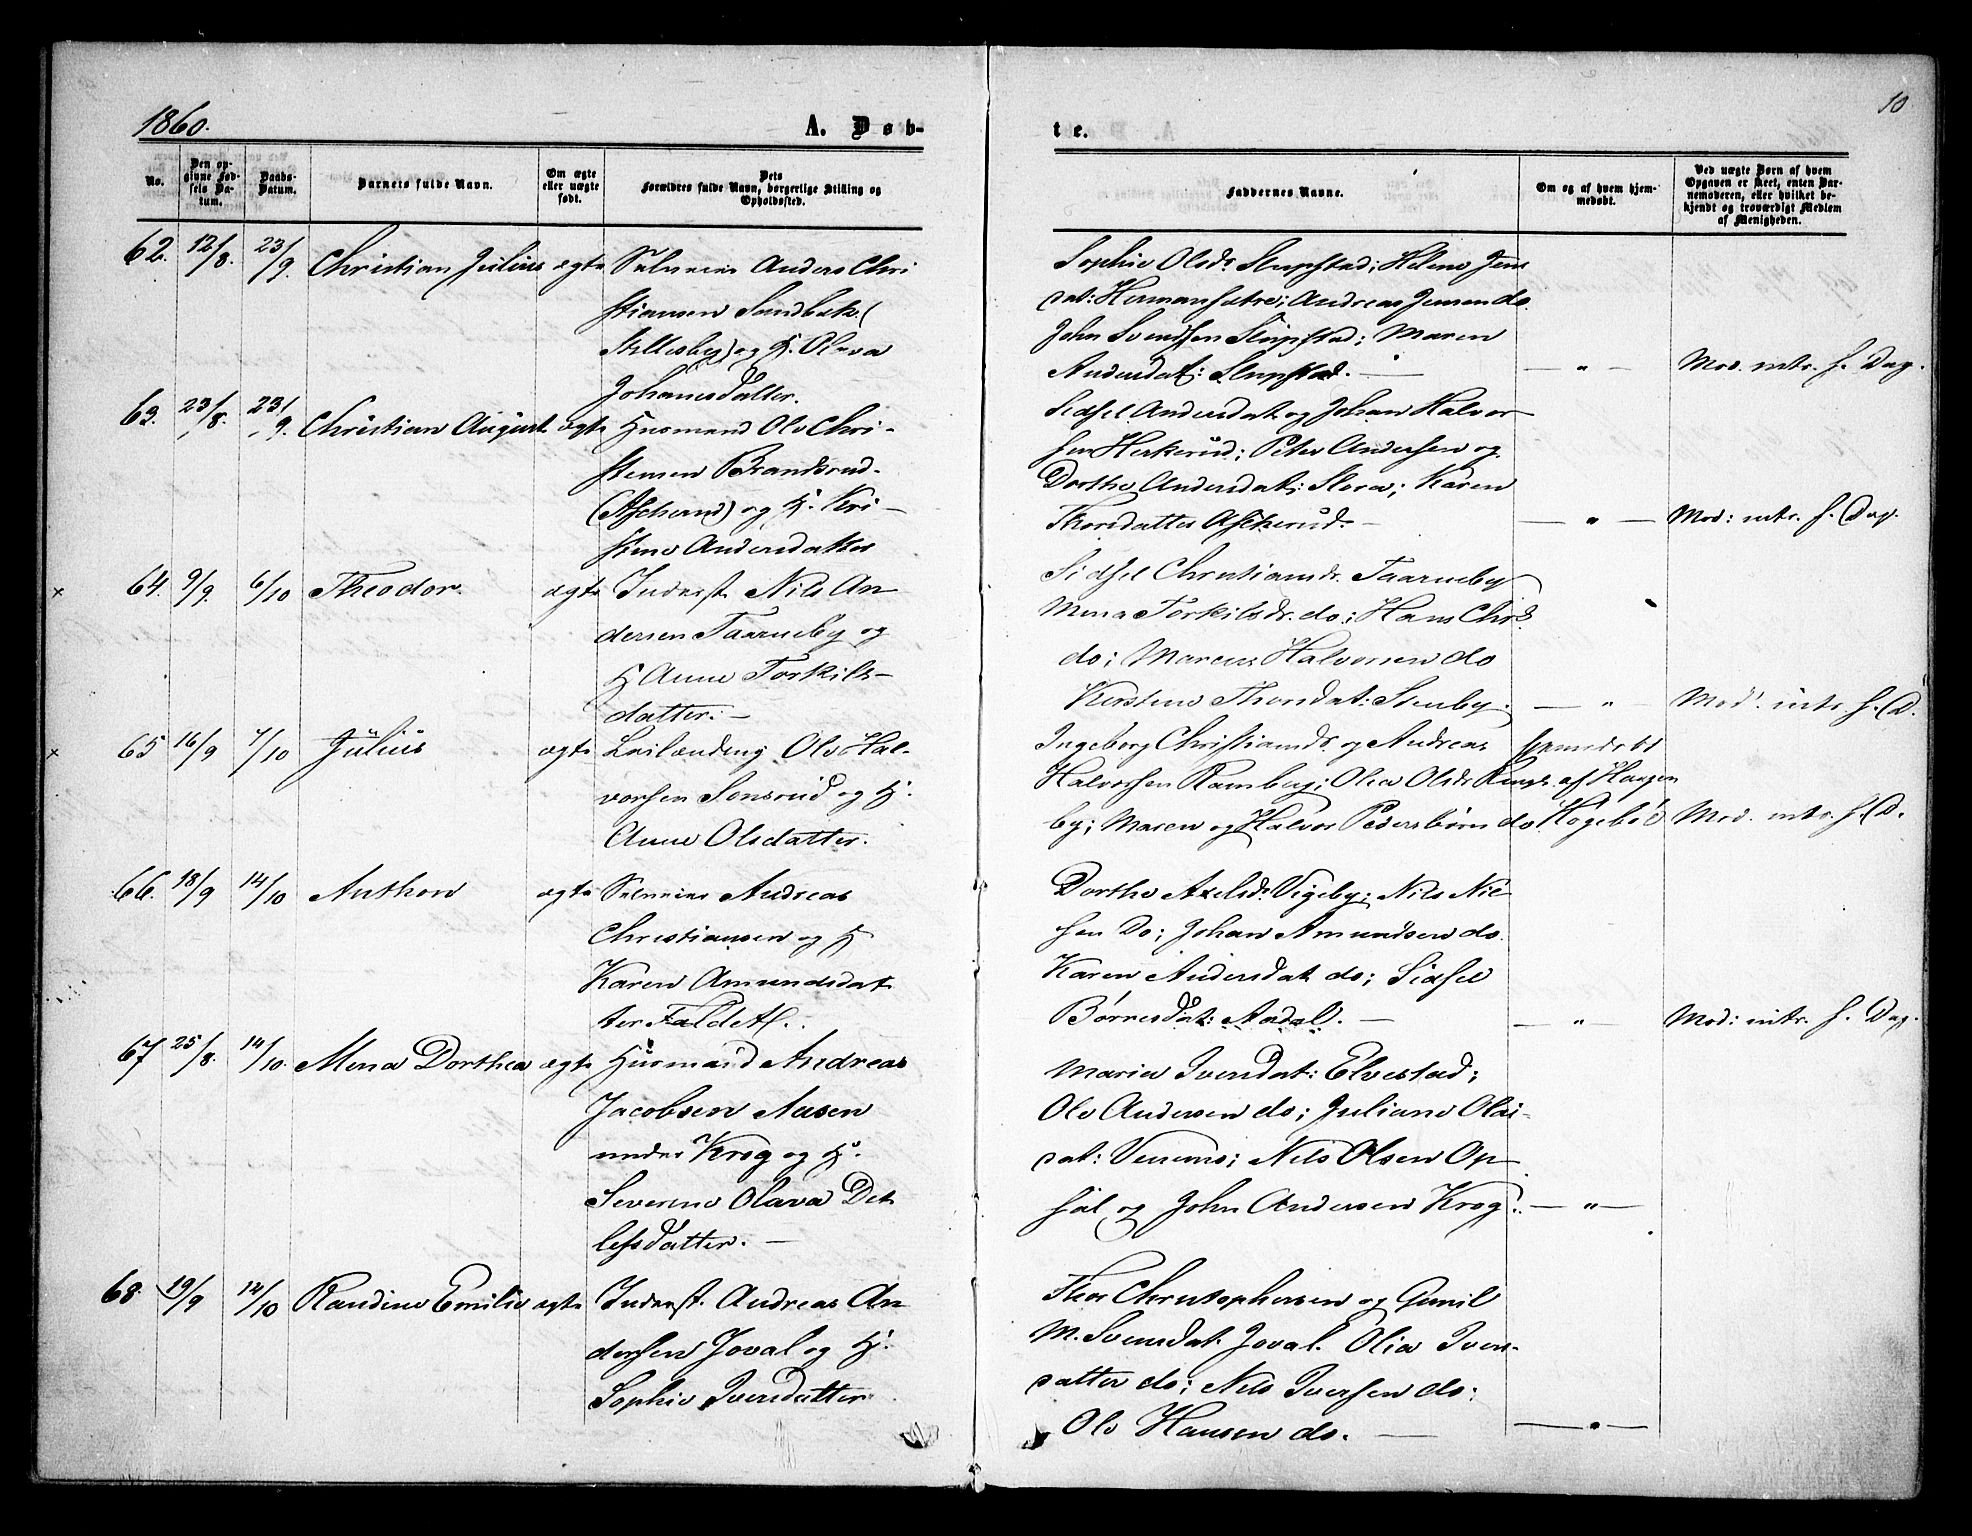 1860.
A. Døb-
te.
10
No.
Den op-
givne Fød-
sels Da-
tum.
Daabs-
Datum.
Barnets fulde Navn.
Om ægte
eller uægte
født.
Dets
Forældres fulde Navn, borgerlige Stilling og
Opholdssted.
Faddernes Navne.
Om og af hvem hjem-
medøbt.
Ved uægte Børn af hvem
Opgaven er skeet, enten Bar-
nemoderen, eller hvilket be-
kjendt og troværdigt Medlem
af Menigheden.
62. 12/8. 23/9. Christian Julius ægte Selveier Anders Chri
stiansen Sandbæk (
og H. Olava
Johannesdatter.
Sophie Olsdr. Slupstad; Helene Jens
dat: Hermansætre; Andreas Jensen do.
John Svendsen Slupstad; Maren
Andersdat: Slupstad. — — " — Mod. intr. s. Dag.
63. 23/8. 23/9. Christian August ægte Husmand Ole Chri-
stensen Brandsrud
(Askerud) og H. Kri-
stine Andersdatter
Sidsel Andersdat og Johan Halvor
sen Herkerud; Peter Andersen og
Dorthe Andersdat: Slora; Karen
Thorsdatter Askerud. — — " — Mod: intr. s. Dag.
x 64. 9/9. 6/10 Theodor. ægte Inderst. Nils An
dersen Taarneby og
H Anne Torkils-
datter. —
Sidsel Christiansdr. Taarneby
Mena Torkilsdr. do; Hans Chrs.
do; Marcus Halvorsen do
Kirstine Thorsdat: Stenby. — " — Mod: intr. s. D.
x 65 16/9 7/10 Julius ægte Losilænding Ole Hal-
vorsen Sonsrud og H.
Anne Olsdatter.
Ingeborg Christiansdr. og Andreas
Halvorsen Ramberg; Olea Olsdr.
by; Maren og Halvor Pedersbørn do
hjemdøbt
af Haagen
Høgebøl Mod. intr. s. D.
66. 18/9 14/10 Anthon ægte Selveier Andreas
Christiansen og H
Karen Amundsdat
ter Faldet.
Dorthe Axelsdr. Vigeby; Nils Niel
sen Do; Johan Amundsen do.
Karen Andersdat do; Sidsel
Børresdat: Aadal. — — " — Mod: intr. s. Dag.
67 25/8. 14/10. Mena Dorthea ægte Husmand Andreas
Jacobsen Aasen
under Krog og H.
Severine Olava Det
lefsdatter. —
Maria Iversdat: Elvestad;
Ole Andersen do; Juliane Olai-
dat: Nils Olsen Op
sal og John Andersen Krog. — " —
68. 19/9 14/10 Randine Emilie ægte Inderst. Andreas An
dersen Joval og H.
Sophie Iversdatter
Thor Christophersen og Gunil
M. Svensdat. Joval. Olia Ivers-
datter do; Nils Iversen do;
Ole Hansen do. — — " —